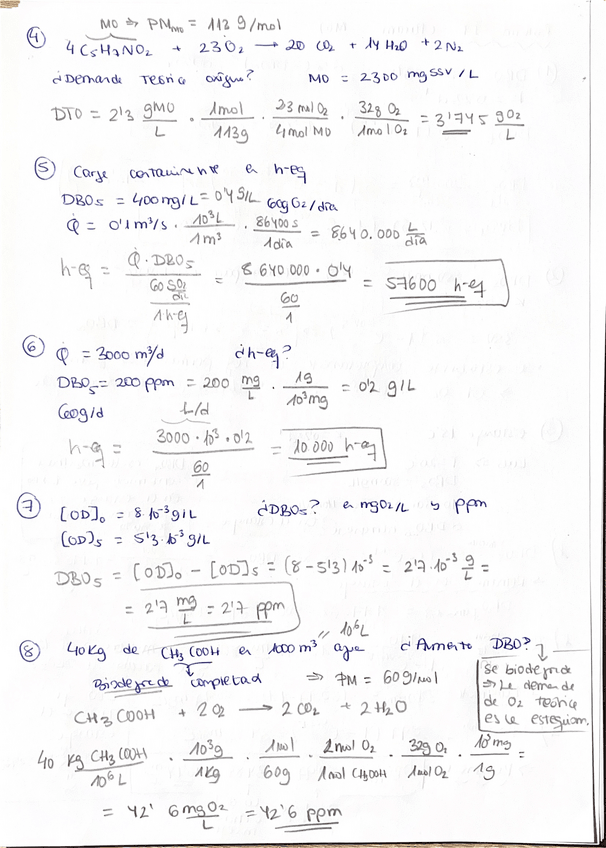 MO ⇒ PM_MO = 113 g/mol
④ 4 C5H7NO2 + 23 O2 → 20 CO2 + 14 H2O + 2 N2
¿Demanda Teórica oxígeno? MO = 2300 mg SSV/L
DTO = 2'3 gMO/L · 1mol/113g · 23 mol O2/4 mol MO · 32g O2/1 mol O2 = 3'745 gO2/L
⑤ Carga contaminante en h-eq
DBO5 = 400 mg/L = 0'4 g/L 60g O2/día
Q̇ = 0'1 m³/s · 10³L/1m³ · 86400 s/1día = 8.640.000 L/día
h-eq = Q̇ · DBO5 / (60 gO2/día / 1 h-eq) = 8.640.000 · 0'4 / (60/1) = 57600 h-eq
⑥ Q̇ = 3000 m³/d ¿h-eq?
DBO5 = 200 ppm = 200 mg/L · 1g/10³mg = 0'2 g/L
60g/d L/d
h-eq = 3000 · 10³ · 0'2 / (60/1) = 10.000 h-eq
⑦ [OD]0 = 8·10⁻³ g/L ¿DBO5? en mgO2/L y ppm
[OD]5 = 5'3·10⁻³ g/L
DBO5 = [OD]0 − [OD]5 = (8 − 5'3) 10⁻³ = 2'7·10⁻³ g/L =
= 2'7 mg/L = 2'7 ppm
10⁶L
⑧ 40 Kg de CH3COOH en 1000 m³ agua ¿Aumento DBO?
Biodegrada completad ⇒ PM = 60 g/mol
CH3COOH + 2 O2 → 2 CO2 + 2 H2O
Se biodegrada
⇒ La demanda
de O2 teórica
es la estequiom.
40 Kg CH3COOH/10⁶ L · 10³g/1Kg · 1mol/60g · 2 mol O2/1 mol CH3COOH · 32g O2/1 mol O2 · 10³ mg/1g =
= 42'6 mgO2/L = 42'6 ppm